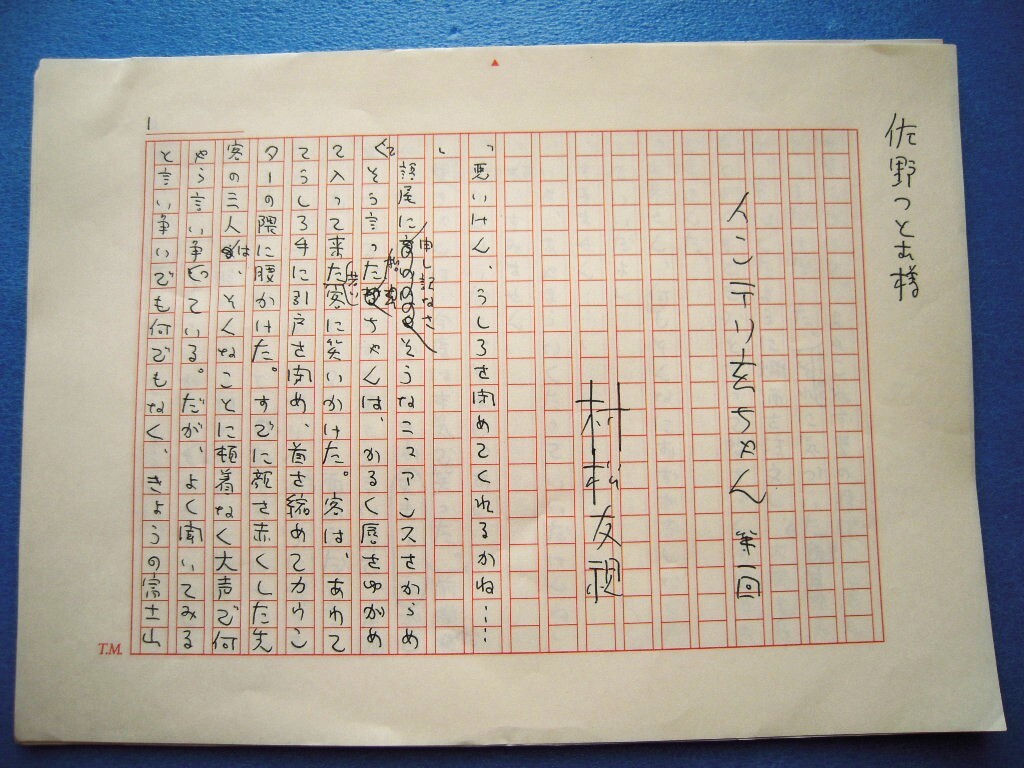 佐野つとむ様
人こテリ玄ちゃん 第一回
村松友視
「悪いけん、うしろを閉めてくれるかね……
」
語尾に申し訳なさそうなニュアンスをからめ
て
そう言った松ちゃんは、かるく唇をゆがめ
て入って来た客に笑いかけた。客は、あわて
てうしろ手に引戸を閉め、首を縮めてカウン
ターの隅に腰かけた。すでに顔を赤くした先
客の三人は、そんなことに頓着なく大声で何
やら言い争っている。だが、よく聞いてみる
と言い争いでも何でもなく、きょうの富士山
1
T.M.